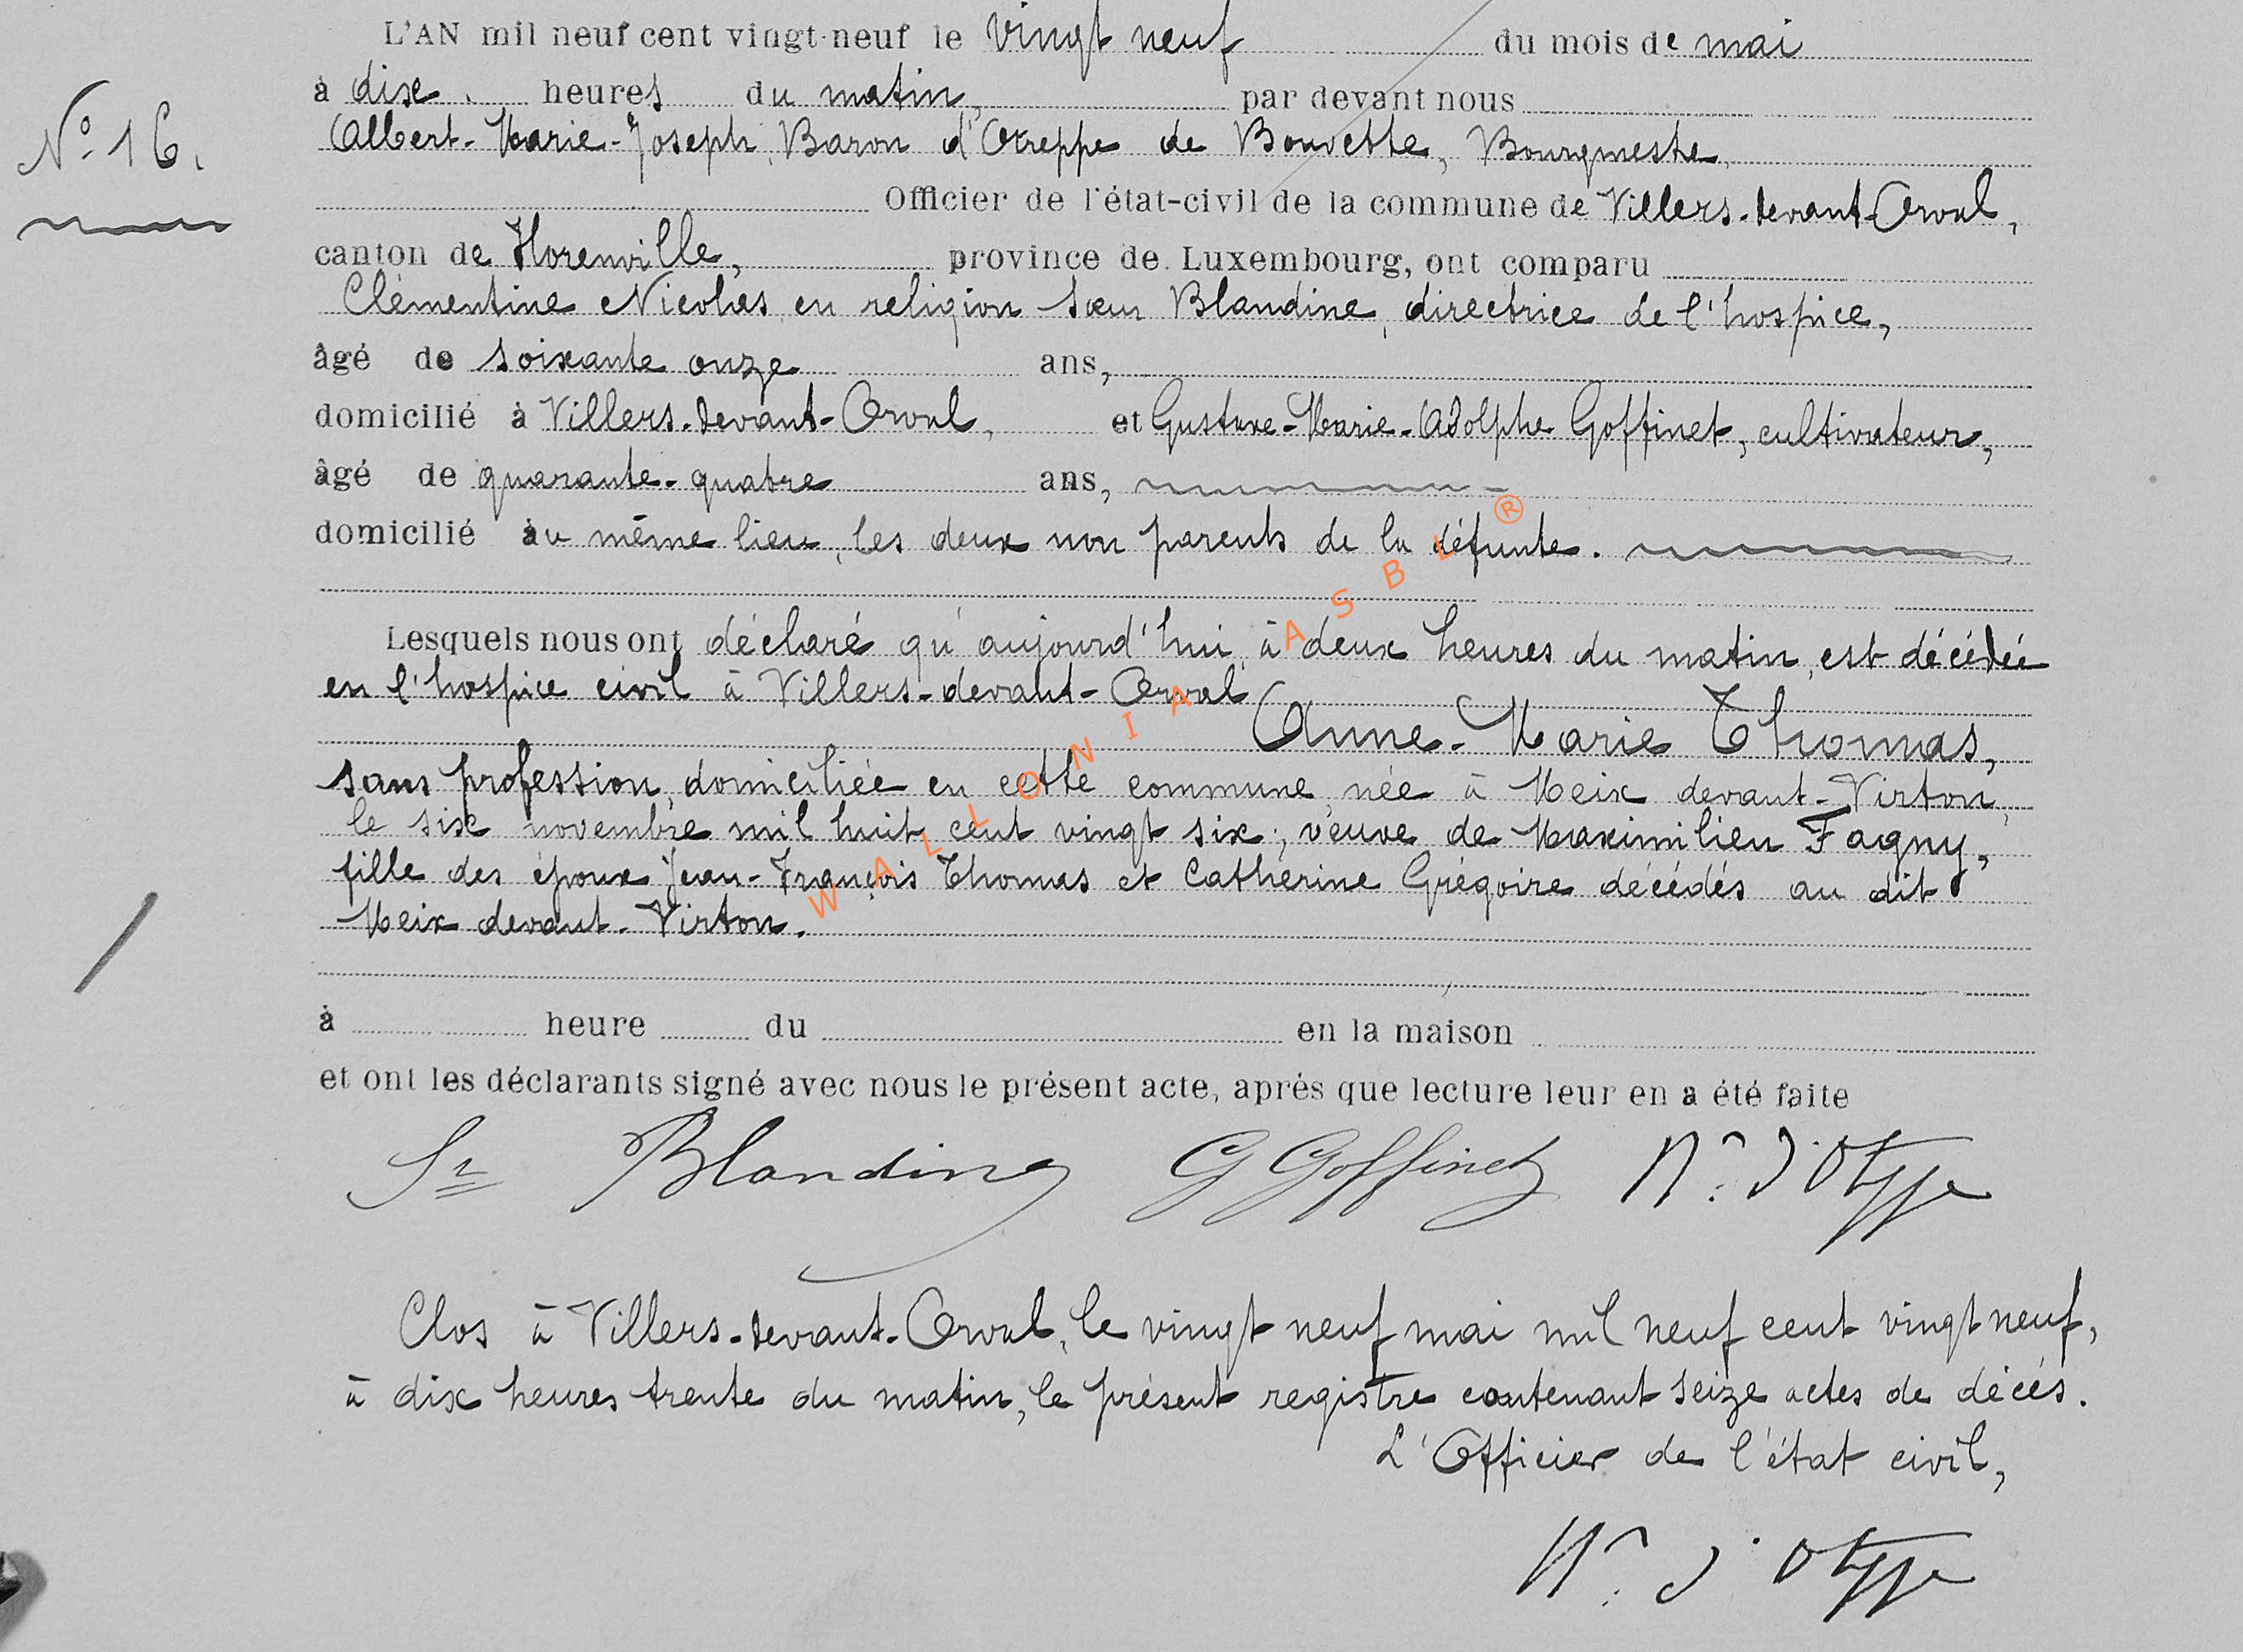 L'AN mil neuf cent vingt-neuf le vingt neuf du mois de mai
à dix heures du matin, par devant nous
N° 16.
Albert-Marie-Joseph, Baron d'Otreppe de Bouvette, Bourgmestre,
Officier de l'état-civil de la commune de Villers-devant-Orval,
canton de Florenville, province de Luxembourg, ont comparu
Clémentine Nicolas, en religion Sœur Blandine, directrice de l'hospice,
âgé de soixante onze ans,
domicilié à Villers-devant-Orval, et Gustave-Marie-Adolphe Goffinet, cultivateur,
âgé de quarante-quatre ans,
domicilié au même lieu, les deux non parents de la défunte.
Lesquels nous ont déclaré qu'aujourd'hui, à deux heures du matin, est décédée
en l'hospice civil à Villers-devant-Orval,
Anne-Marie Thomas,
sans profession, domiciliée en cette commune, née à Meix devant-Virton,
le six novembre mil huit cent vingt six, veuve de Maximilien Fagny,
fille des époux Jean-François Thomas et Catherine Grégoire décédés au dit
Meix devant-Virton.
WALLONIA ASBL ®
à heure du en la maison
et ont les déclarants signé avec nous le présent acte, après que lecture leur en a été faite
Sr Blandine G Goffinet d'Otreppe
Clos à Villers-devant-Orval, le vingt neuf mai mil neuf cent vingt neuf,
à dix heures trente du matin, le présent registre contenant seize actes de décès.
L'Officier de l'état civil,
d'Otreppe